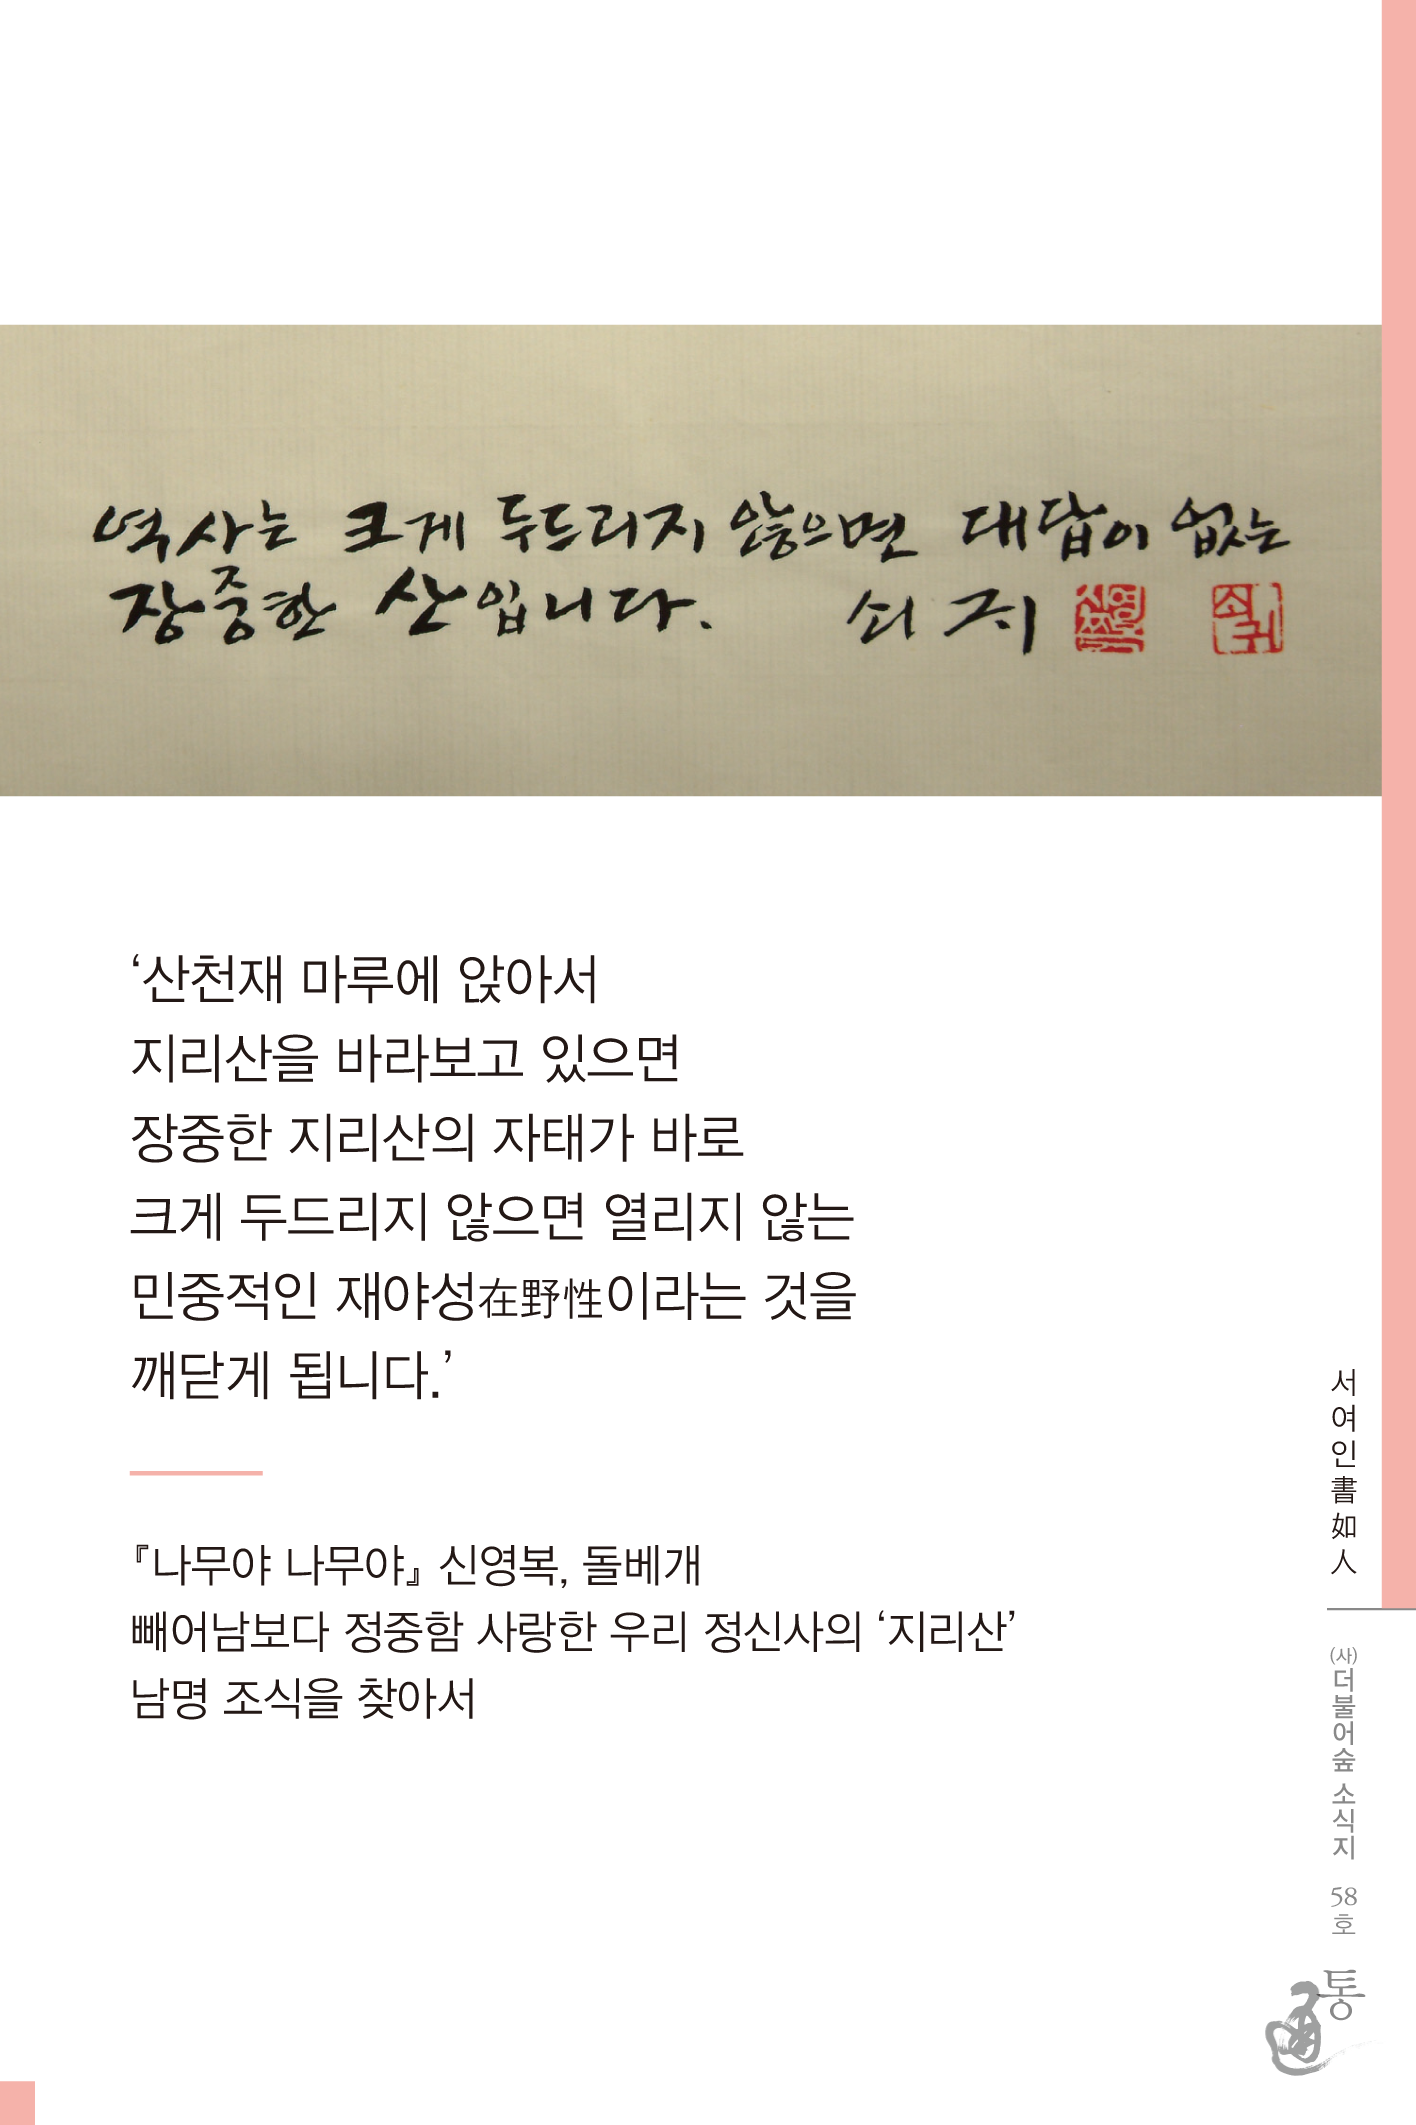 역사는 크게 두드리지 않으면 대답이 없는
장중한 산입니다. 쇠귀
‘산천재 마루에 앉아서
지리산을 바라보고 있으면
장중한 지리산의 자태가 바로
크게 두드리지 않으면 열리지 않는
민중적인 재야성在野性이라는 것을
깨닫게 됩니다.’
『나무야 나무야』 신영복, 돌베개
빼어남보다 정중함 사랑한 우리 정신사의 ‘지리산’
남명 조식을 찾아서
서여인書如人
(사)더불어숲 소식지 58호
통